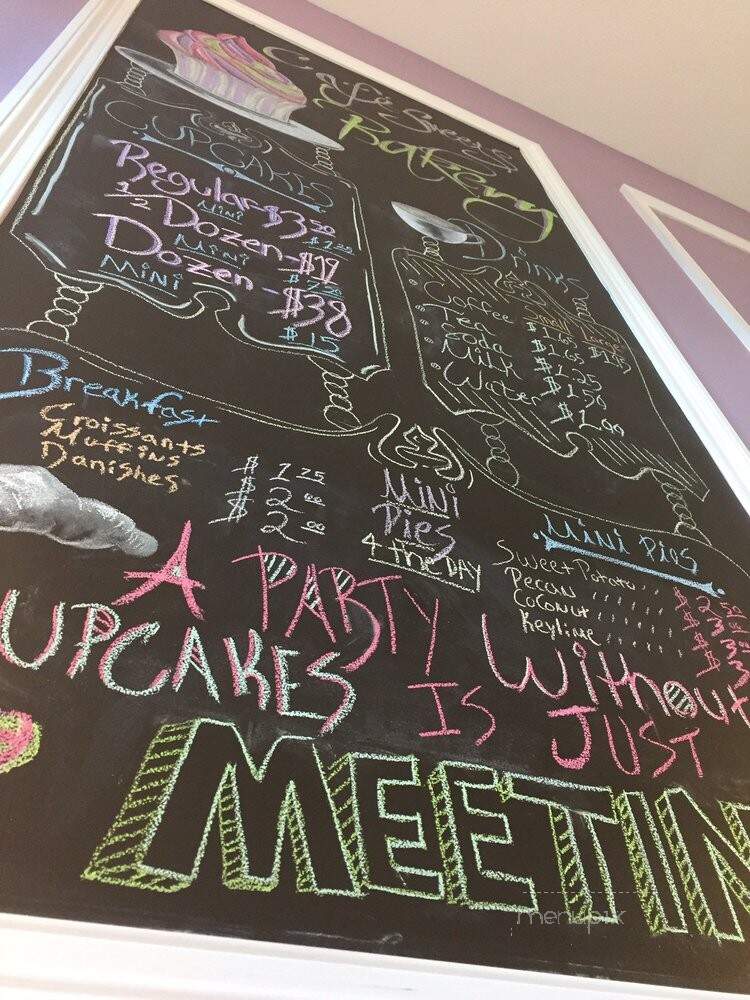 Café Sweets
Bakery
CUPCAKES
Regular $3.50
Mini
1/2 Dozen - $19
Mini
Dozen - $38
Mini $15
Drinks
Small Large
Coffee $1.65
Tea $1.65
Soda $1.25
Milk $1.50
Water $1.00
Breakfast
Croissants $1.25
Muffins $2.00
Danishes $2.00
Mini
Pies
4 the DAY
Mini Pies
Sweet Potato
Pecan
Coconut
Keylime
A PARTY Without
UPCAKES IS JUST
MEETIN
menupix